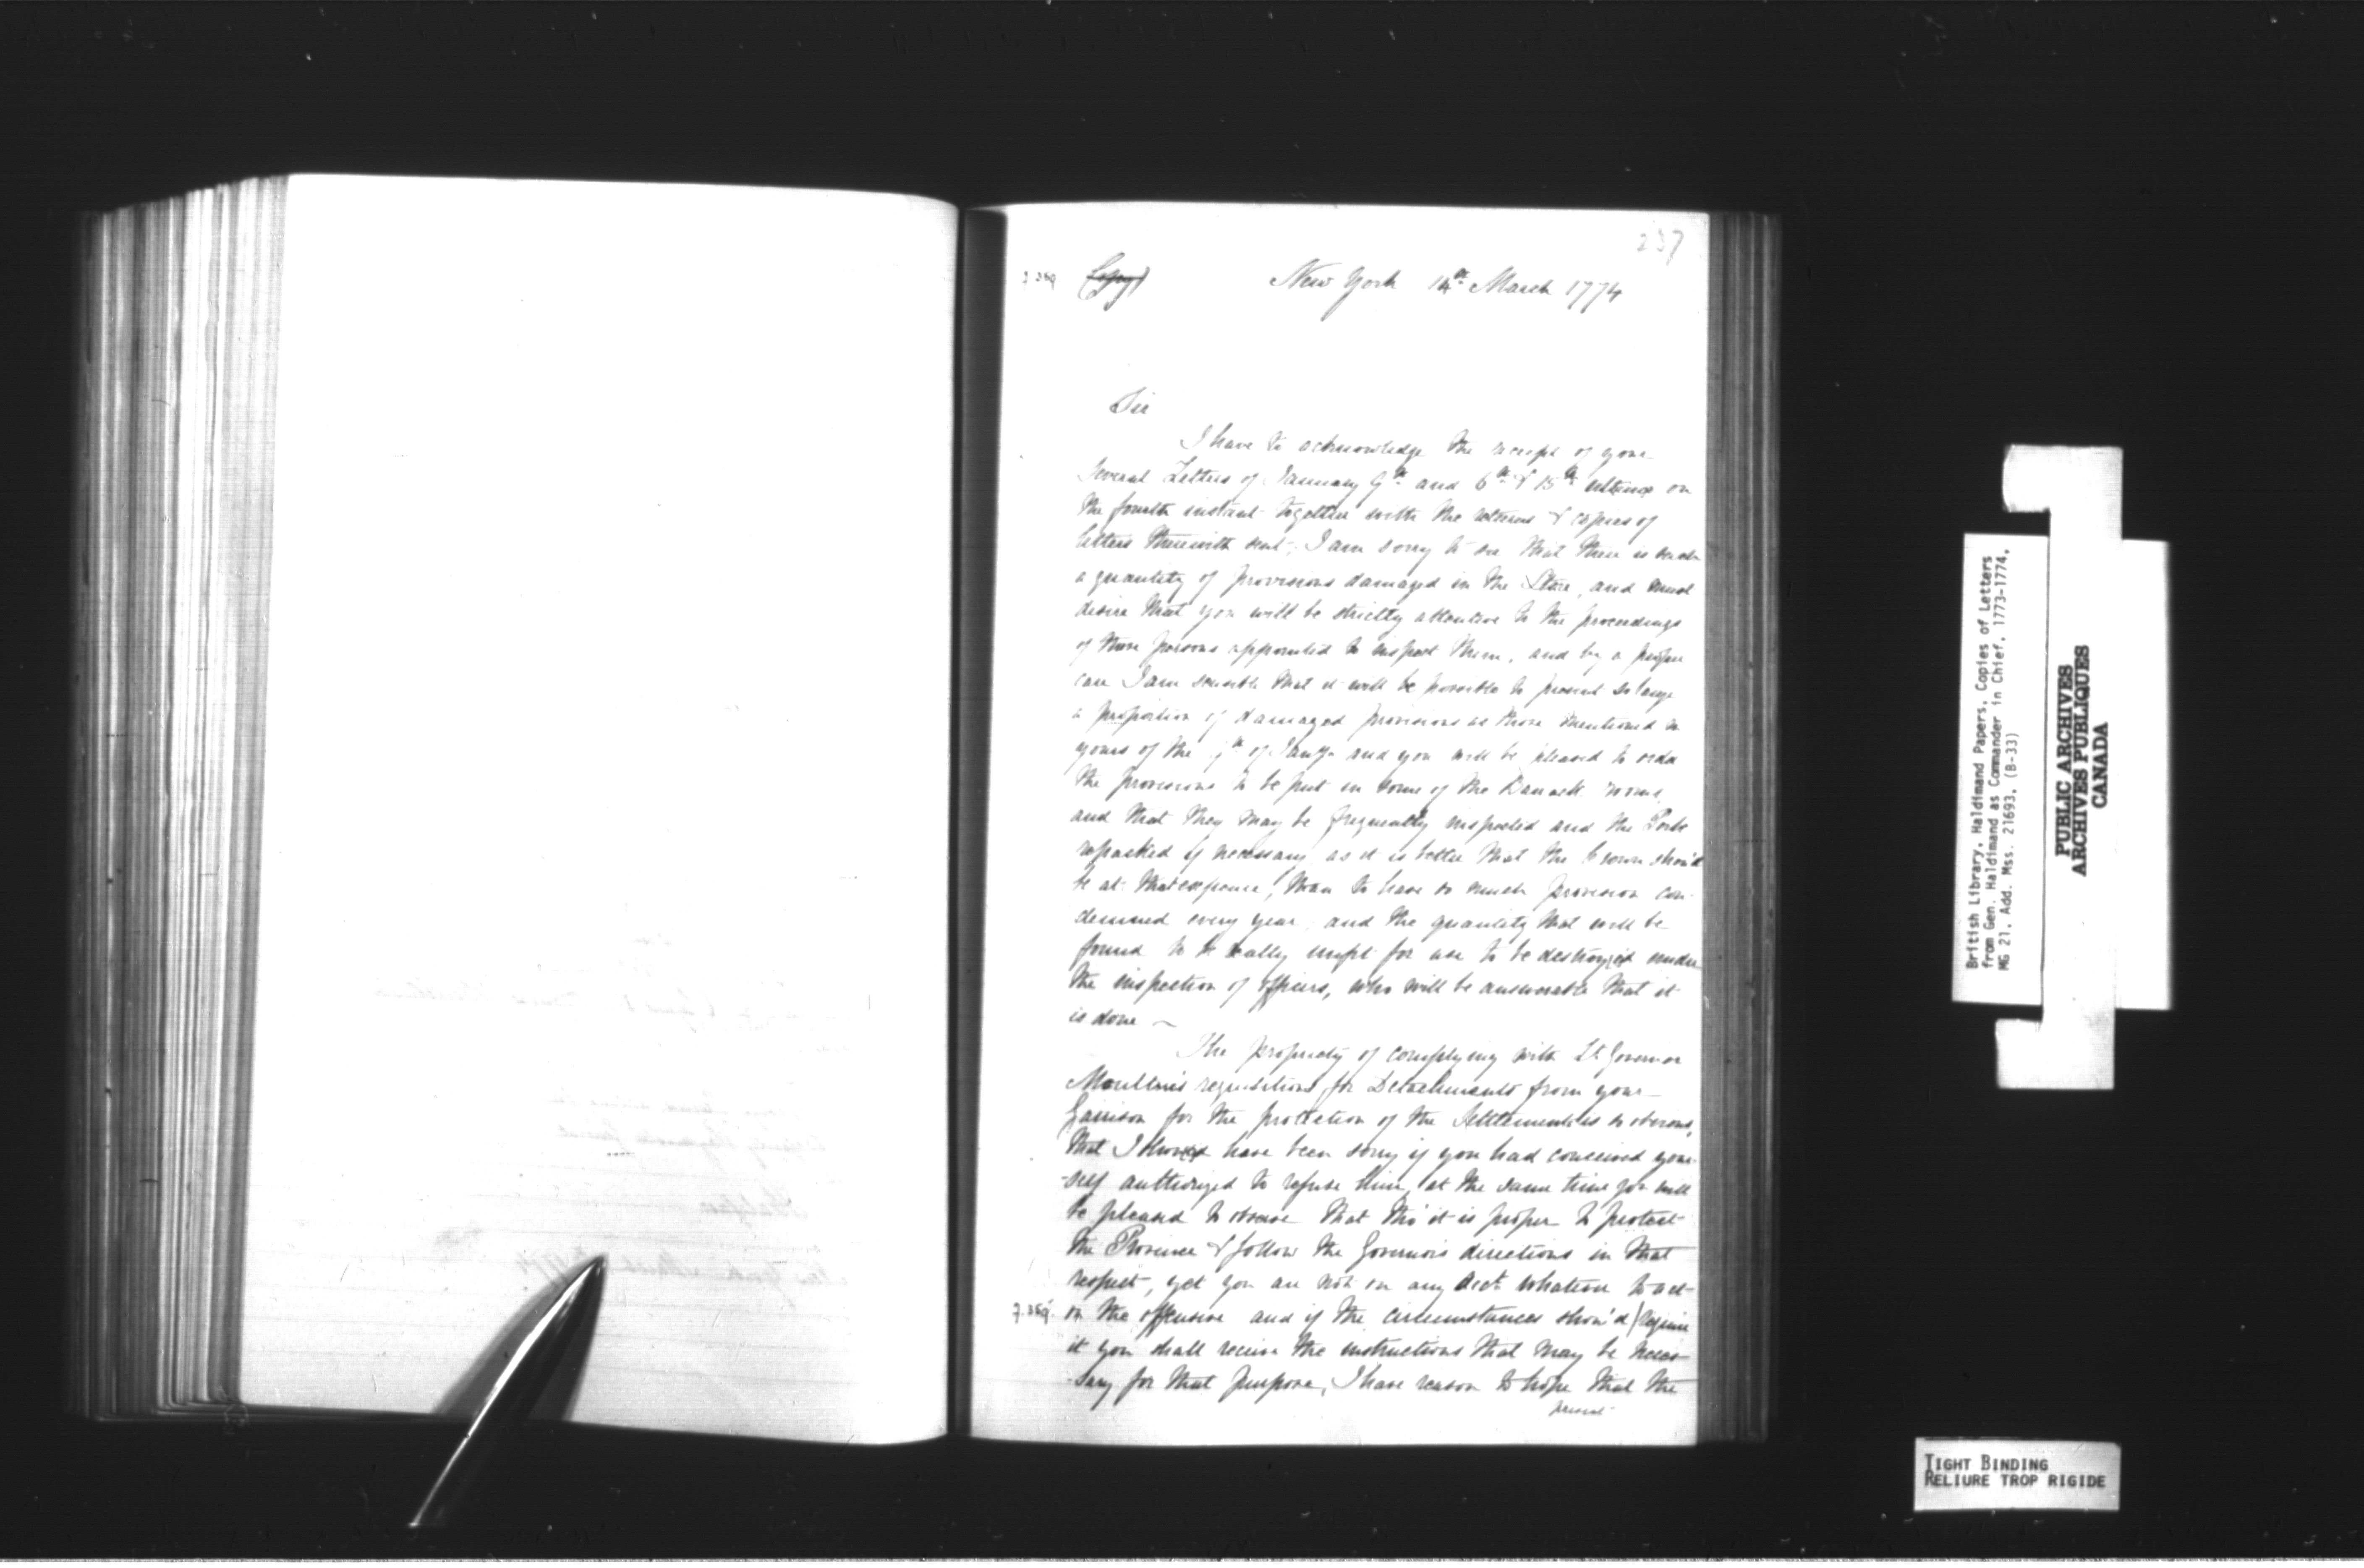 237
f. 359 (Copy) New York 14th March 1774
Sir
I have to acknowledge the receipt of your
several Letters of January 9th and 6th & 15th ultimo on
the fourth instant together with the returns & copies of
letters therewith sent; I am sorry to see that there is such
a quantity of provisions damaged in the Store, and must
desire that you will be strictly attentive to the proceedings
of those persons appointed to inspect them, and by a proper
care I am sensible that it will be possible to prevent so large
a proportion of damaged provisions as those mentioned in
yours of the of Jany. and you will be pleased to order
the provisions to be put in some of the Barrack rooms,
and that they may be frequently inspected and the Pork
repacked if necessary as it is better that the Crown shou'd
be at that expence, than to have so much provision con-
demned every year and the quantity that will be
found to be really unfit for use to be destroyed under
the inspection of officers, who will be answerable that it
is done
The propriety of complying with Lt. Governor
Moultrie's requisitions for Detachments from your
Garrison for the protection of the Settlements is so obvious,
that I should have been sorry if you had conceived your-
-self authorized to refuse him, at the same time you will
be pleased to observe that tho' it is proper to protect
the Province & follow the Governor's directions in that
respect, yet you are not on any acct. whatever to act
f. 359. on the offensive and if the circumstances shou'd / require
it you shall receive the instructions that may be neces-
-sary for that purpose, I have reason to hope that the
present
British Library, Haldimand Papers, Copies of Letters
from Gen. Haldimand as Commander in Chief, 1773-1774,
MG 21, Add. Mss. 21693, (B-33)
PUBLIC ARCHIVES
ARCHIVES PUBLIQUES
CANADA
TIGHT BINDING
RELIURE TROP RIGIDE